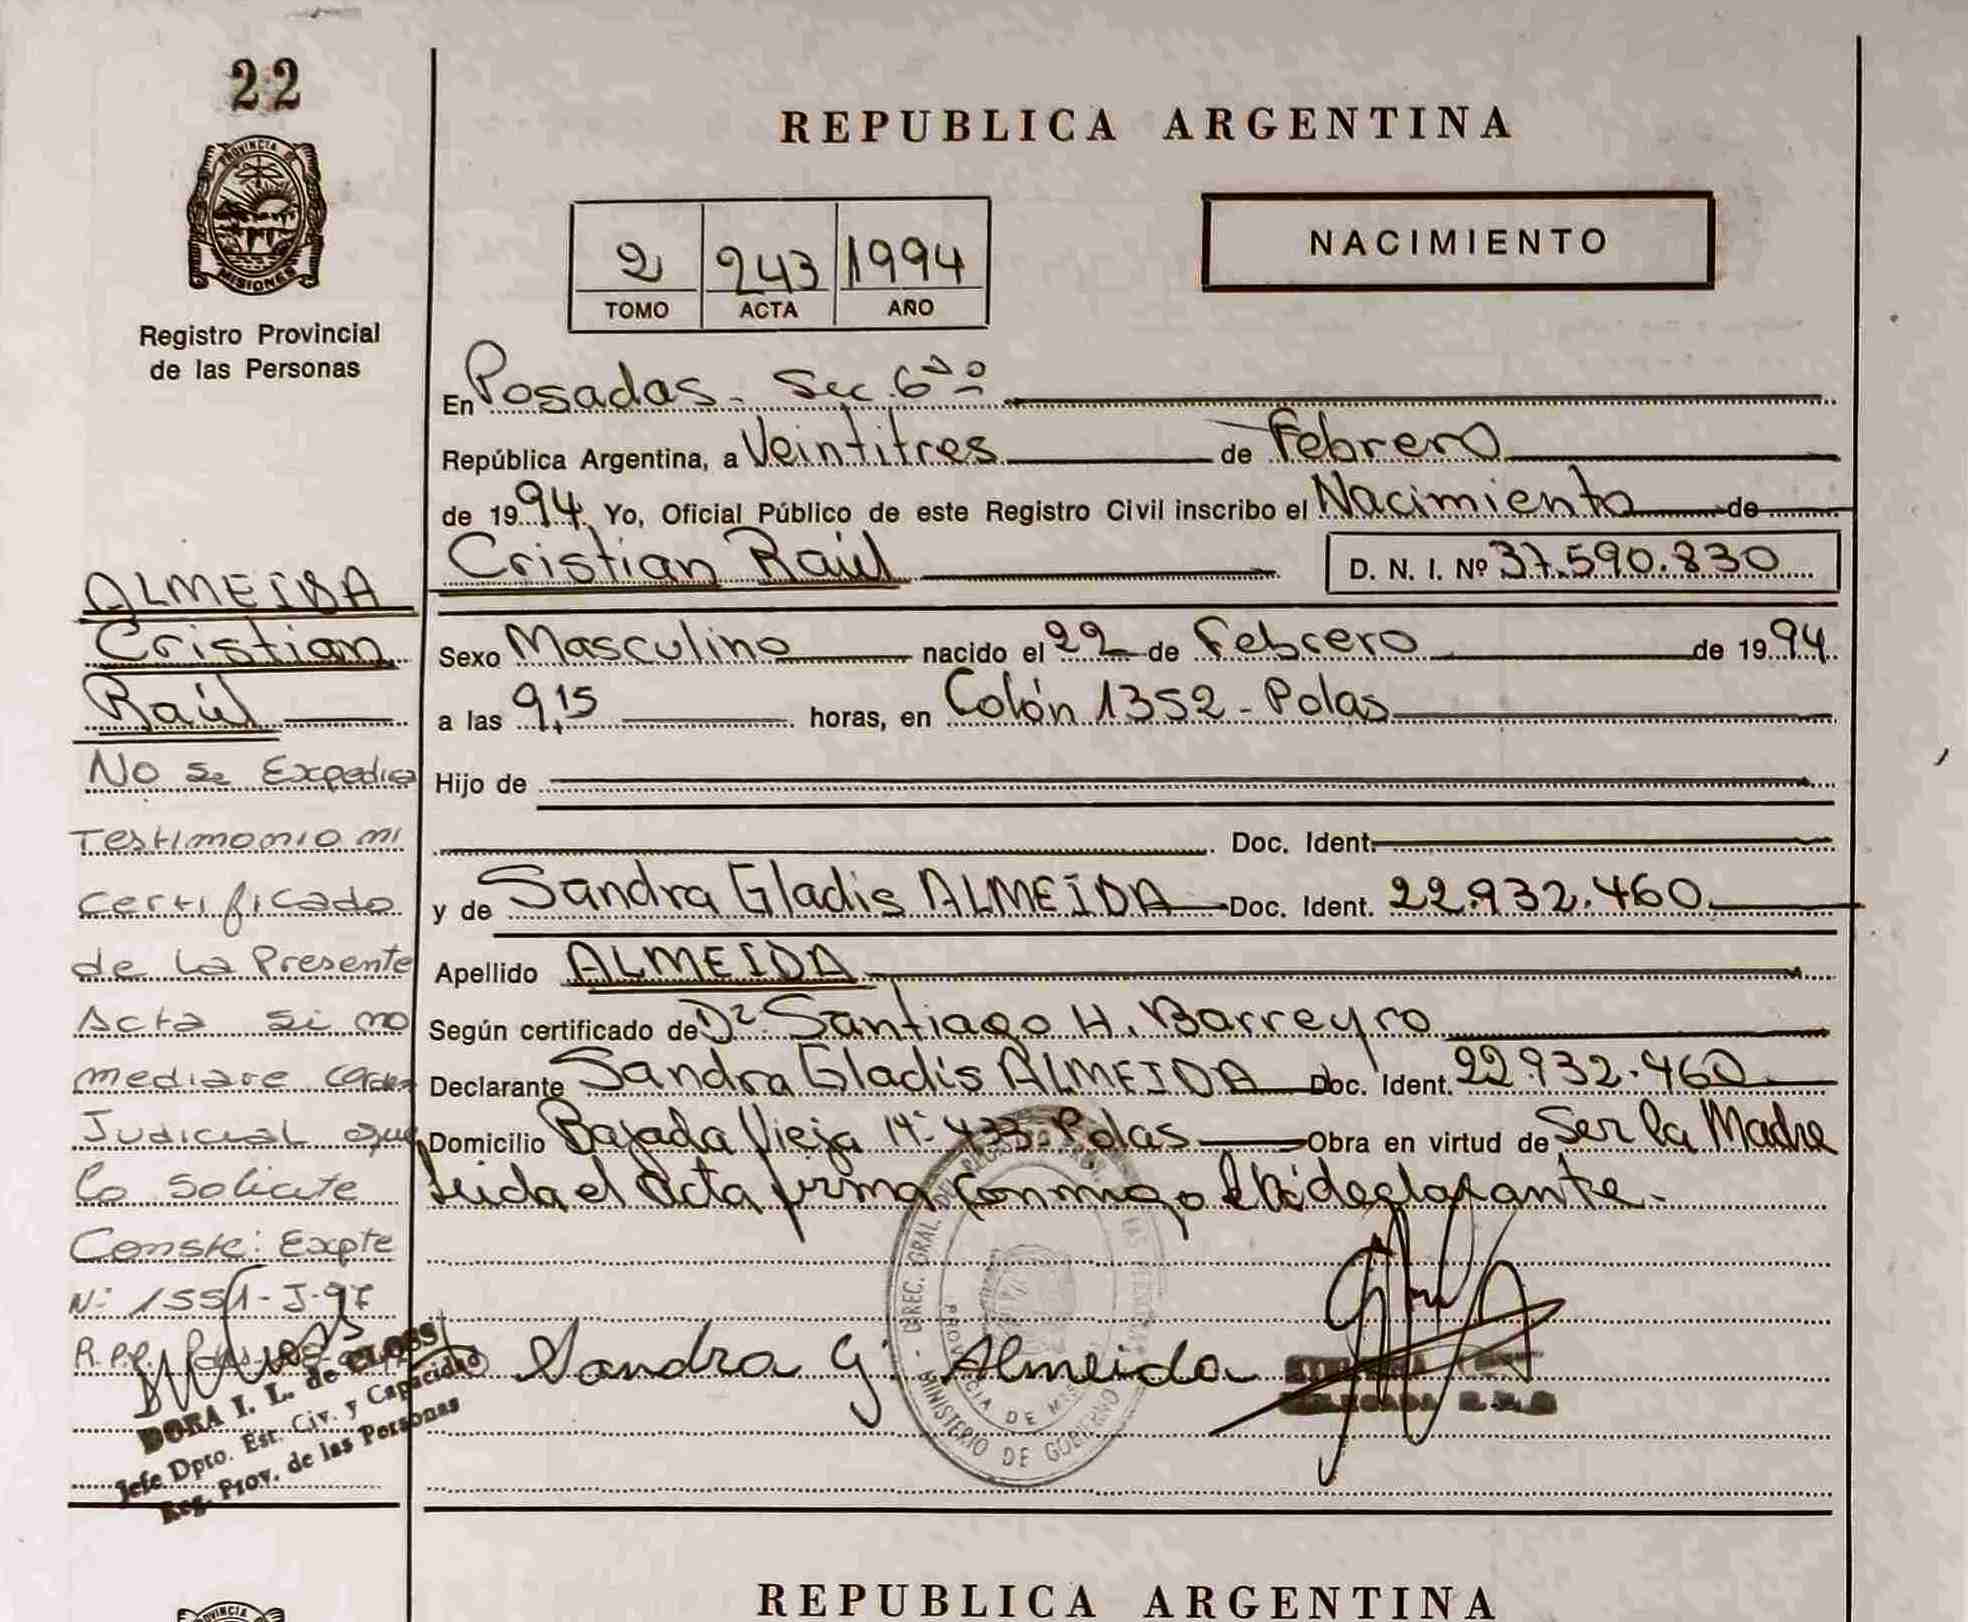 22
PROVINCIA DE
MISIONES
Registro Provincial
de las Personas
REPUBLICA ARGENTINA
2 243 1994
TOMO ACTA AÑO
NACIMIENTO
En Posadas - Sec. 6
República Argentina, a Veintitres de Febrero
de 1994. Yo, Oficial Público de este Registro Civil inscribo el Nacimiento de
Cristian Raúl D. N. I. Nº 37.590.830
Sexo Masculino nacido el 22 de Febrero de 1994
a las 9,15 horas, en Colón 1352 - Pdas
Hijo de
Doc. Ident.
y de Sandra Gladis ALMEIDA Doc. Ident. 22.932.460
Apellido ALMEIDA
Según certificado de Dr. Santiago H. Barreyro
Declarante Sandra Gladis ALMEIDA Doc. Ident. 22.932.460
Domicilio Bajada Vieja Nº 433 - Pdas Obra en virtud de Ser la Madre
Leida el acta firma conmigo declarante.
Sandra G. Almeida
DIREC. GRAL. DE
PROVINCIA DE MISIONES
MINISTERIO DE GOBIERNO
ALMEIDA
Cristian
Raúl
No se Expedira
Testimonio ni
certificado
de la Presente
Acta si no
mediare orden
Judicial que
lo solicite
Conste: Expte
Nº 1551-J-97
R.P.P.
DORA I. L. de CLOSS
Jefe Dpto. Est. Civ. y Capacidad
Reg. Prov. de las Personas
PROVINCIA DE
REPUBLICA ARGENTINA